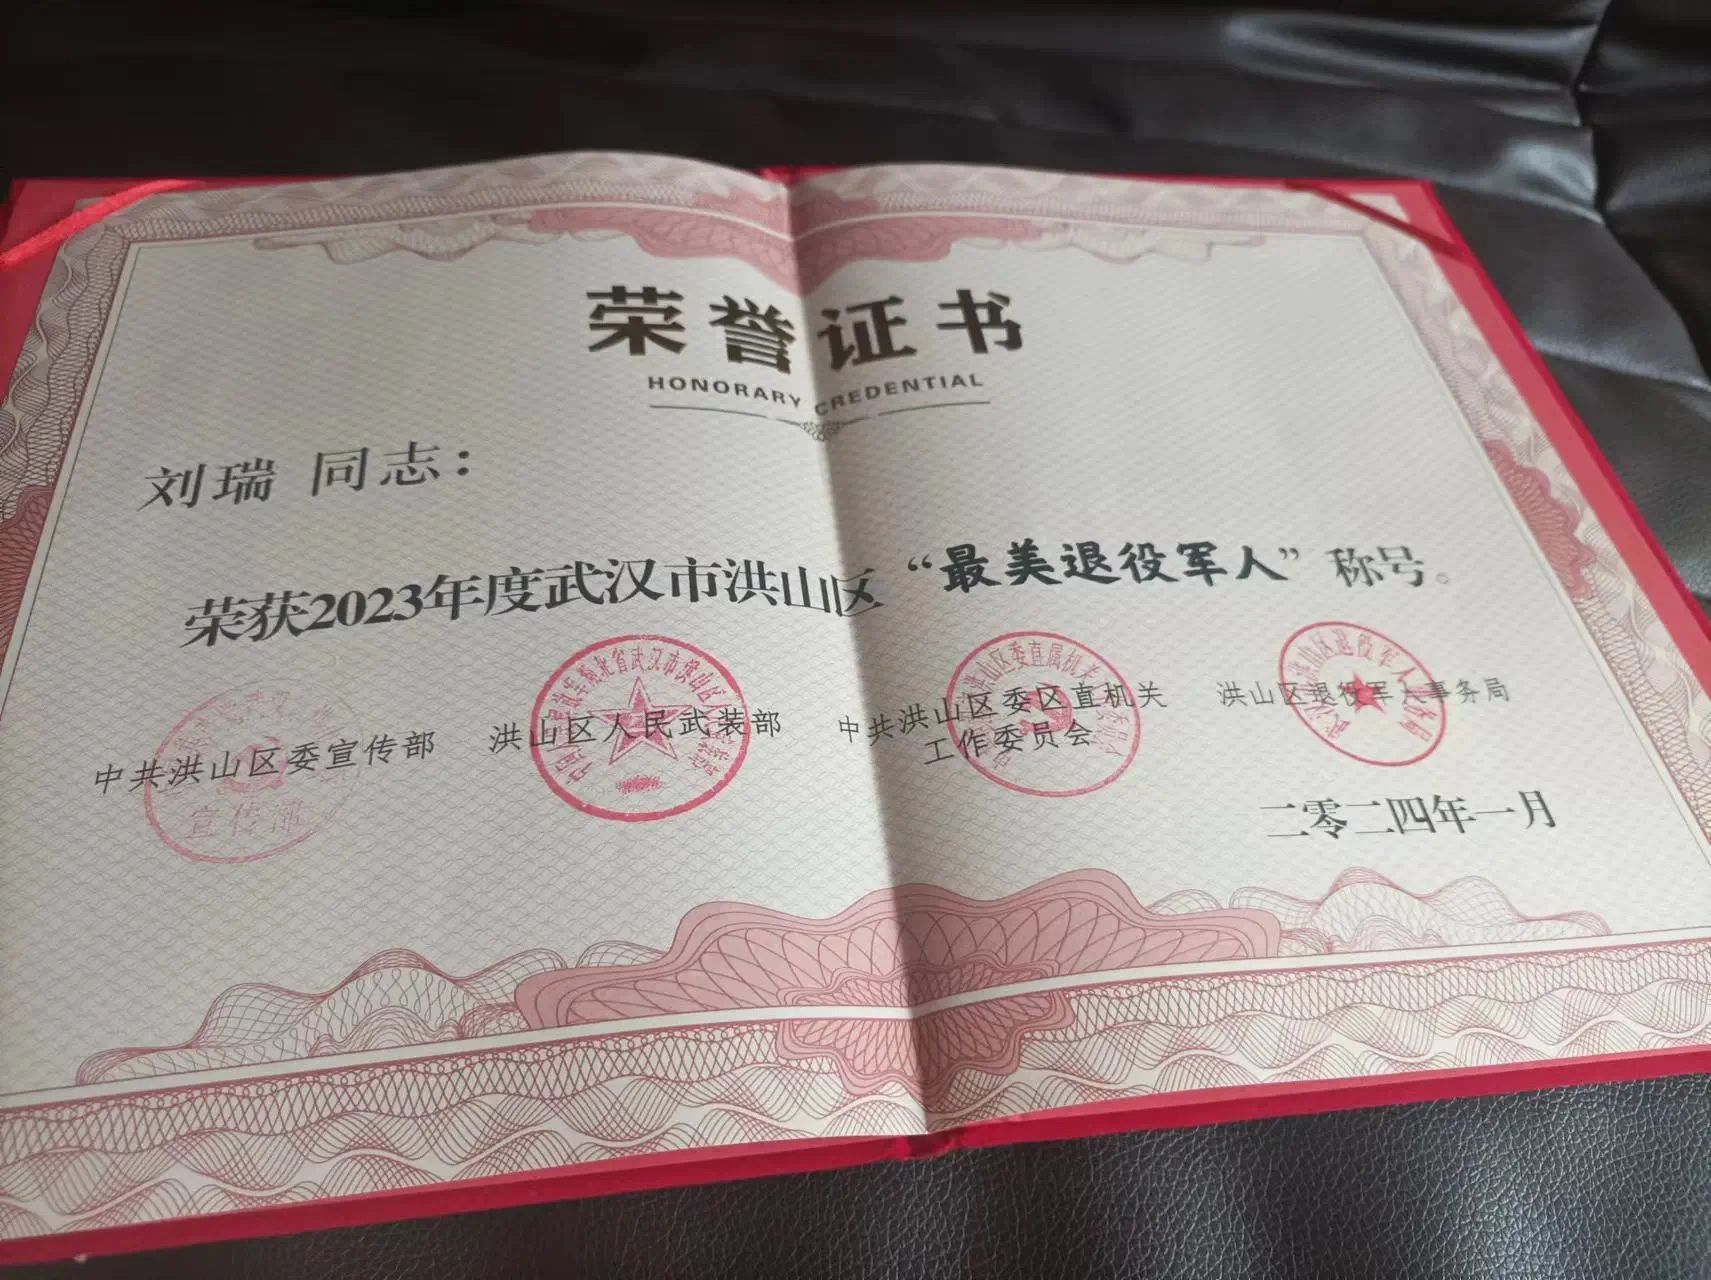 荣誉证书
HONORARY CREDENTIAL
刘瑞 同志：
荣获2023年度武汉市洪山区“最美退役军人”称号。
中共洪山区委宣传部 洪山区人民武装部 中共洪山区委区直机关 洪山区退役军人事务局
工作委员会
宣传部
二零二四年一月